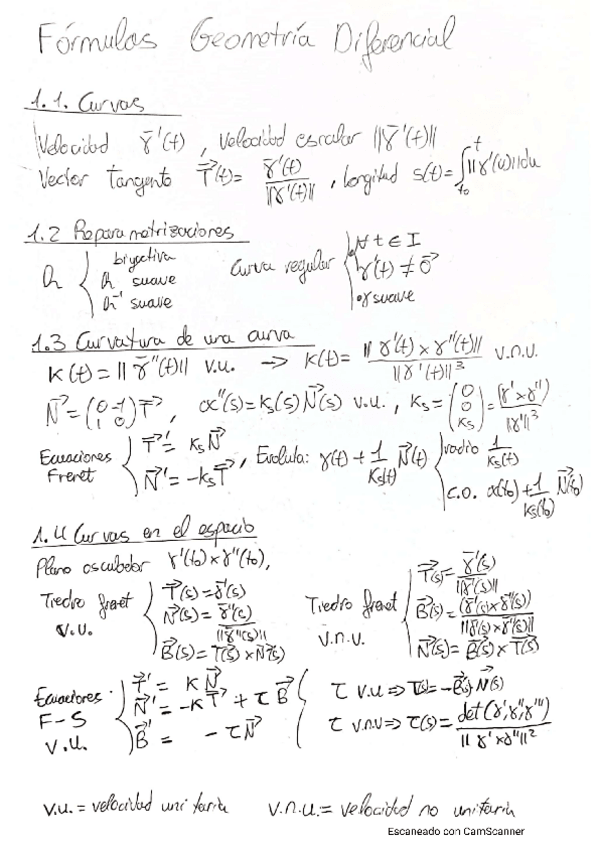 Fórmulas Geometría Diferencial
1.1. Curvas
Velocidad γ̄'(t), velocidad escalar ||γ̄'(t)||
Vector tangente T⃗(t) = γ̄'(t) / ||γ̄'(t)||, longitud s(t) = ∫_{t₀}^{t} ||γ'(u)|| du
1.2 Reparametrizaciones
h { biyectiva, h suave, h⁻¹ suave
Curva regular { ∀ t ∈ I, γ'(t) ≠ 0⃗, γ suave
1.3 Curvatura de una curva
K(t) = ||γ̄''(t)|| v.u. → K(t) = ||γ'(t) × γ''(t)|| / ||γ'(t)||³ v.n.u.
N⃗ = (0 -1; 1 0) T⃗, α''(s) = Ks(s) N⃗(s) v.u., Ks = (0; 0; Ks) = (γ' × γ'') / ||γ'||³
Ecuaciones Frenet { T⃗' = Ks N⃗, N⃗' = -Ks T⃗, Evoluta: γ(t) + 1/Ks(t) N⃗(t) { radio 1/Ks(t), c.o. α(t₀) + 1/Ks(t₀) N⃗(t₀)
1.4 Curvas en el espacio
Plano osculador γ'(t₀) × γ''(t₀),
Triedro frenet v.u. { T⃗(s) = γ̄'(s)
N⃗(s) = γ̄''(s) / ||γ̄''(s)||
B⃗(s) = T⃗(s) × N⃗(s)
Triedro frenet v.n.u. { T⃗(s) = γ̄'(s) / ||γ̄'(s)||
B⃗(s) = (γ̄'(s) × γ̄''(s)) / ||γ̄'(s) × γ̄''(s)||
N⃗(s) = B⃗(s) × T⃗(s)
Ecuaciones F-S v.u. { T⃗' = K N⃗
N⃗' = -K T⃗ + τ B⃗
B⃗' = - τ N⃗
τ v.u ⇒ τ(s) = -B⃗'(s) N⃗(s)
τ v.n.u ⇒ τ(s) = det(γ', γ'', γ''') / ||γ' × γ''||²
v.u. = velocidad unitaria v.n.u. = velocidad no unitaria
Escaneado con CamScanner